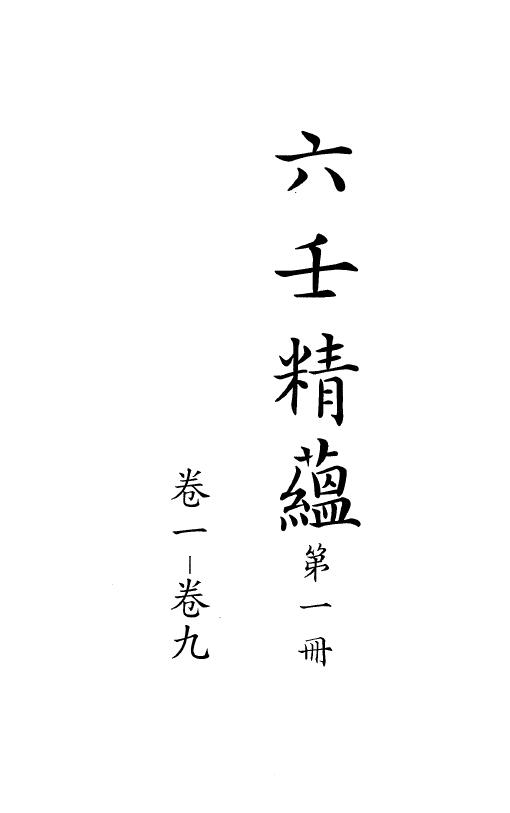 六壬精蘊第一冊
卷一—卷九